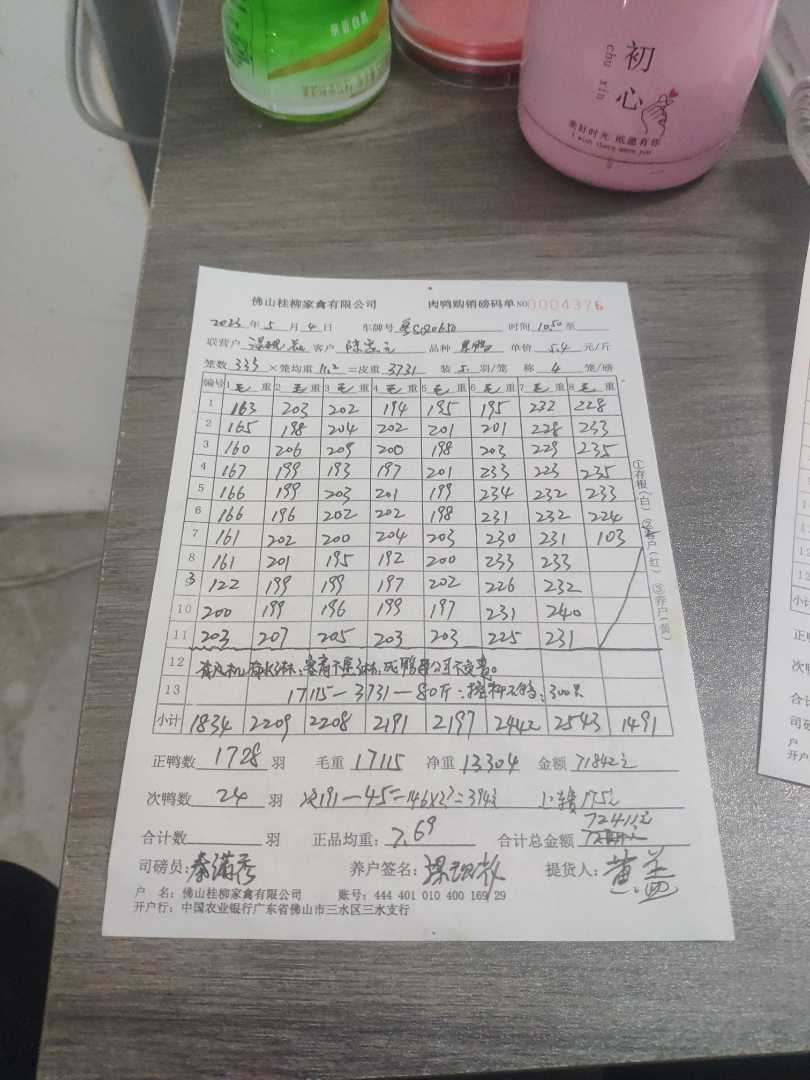 初
心
chu xin
美好时光 纸愿有你
I wish there were you
佛山桂柳家禽有限公司 肉鸭购销磅码单 NO 0004376
2023 年 5 月 4 日 车牌号 时间 10.50 至
联营户 客户 品种 单价 5.4 元/斤
笼数 333 ×笼均重 11.2 =皮重 3731 装 5 羽/笼 称 4 笼/磅
编号 1 毛 重 2 毛 重 3 毛 重 4 毛 重 5 毛 重 6 毛 重 7 毛 重 8 毛 重
1 163 203 202 194 195 195 232 228
2 165 198 204 202 201 201 228 233
3 160 206 209 200 198 203 229 235
4 167 199 193 197 201 233 223 235
5 166 199 203 201 199 234 232 233
6 166 196 202 202 198 231 232 224
7 161 202 200 204 203 230 231 103
8 161 201 195 192 200 233 233
3 122 199 199 197 202 226 232
10 200 199 196 199 197 231 240
11 203 207 205 203 203 225 231
12
13 17115-3731-80斤 300只
小计 1834 2209 2208 2191 2197 2442 2543 1491
正鸭数 1728 羽 毛重 17115 净重 13304 金额 71842元
次鸭数 24 羽 191-45=146×27=3942 175元
72411元
合计数 羽 正品均重: 7.69 合计总金额
司磅员: 秦满秀 养户签名: 提货人:
户 名: 佛山桂柳家禽有限公司 账号: 444 401 010 400 169 29
开户行: 中国农业银行广东省佛山市三水区三水支行
①存根(白) ②客户(红) ③养户(黄)